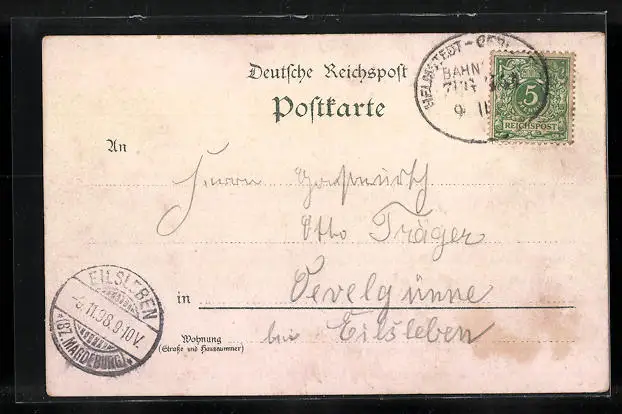 Deutsche Reichspost
Postkarte
HELMSTEDT - 
BAHN
ZUG
9 11
5
REICHSPOST
An
Herrn Gastwirth
Otto Träger
in Oevelgünne
bei Eilsleben
Wohnung
(Straße und Hausnummer)
EILSLEBEN
-6.11.98.9-10V.
*(BZ. MAGDEBURG)*